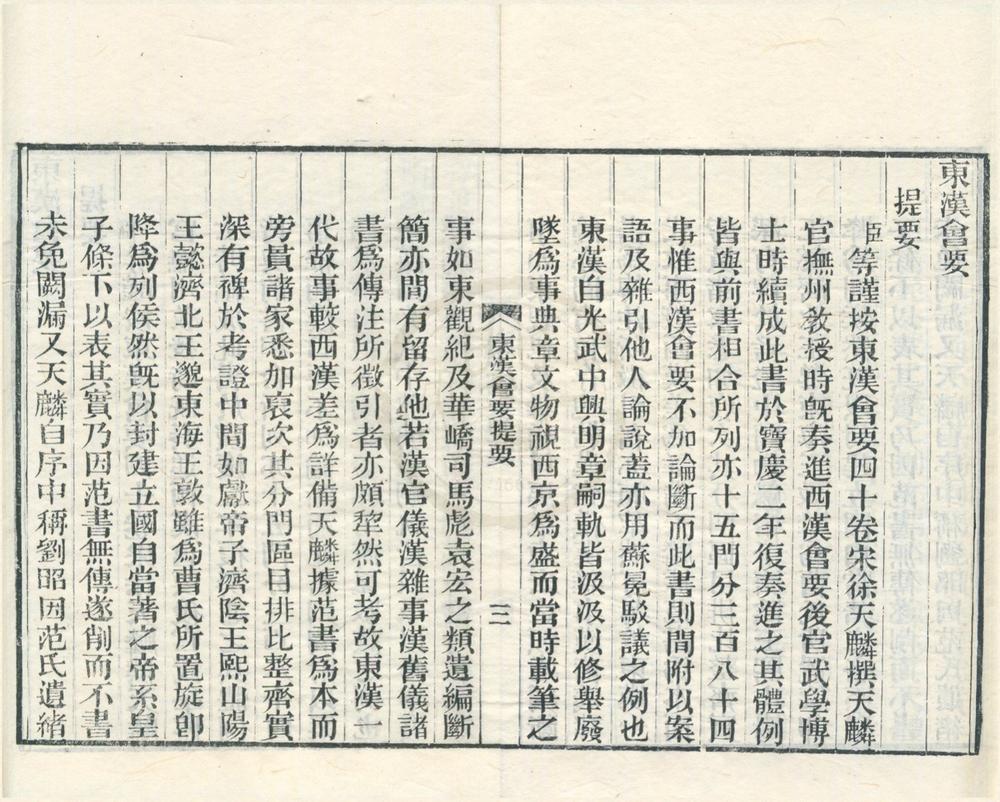 東漢會要
提要
臣等謹按東漢會要四十卷宋徐天麟撰天麟
官撫州敎授時旣奏進西漢會要後官武學博
士時續成此書於寶慶二年復奏進之其體例
皆與前書相合所列亦十五門分三百八十四
事惟西漢會要不加論斷而此書則間附以案
語及雜引他人論說蓋亦用蘇冕駁議之例也
東漢自光武中興明章嗣軌皆汲汲以修舉廢
墜爲事典章文物視西京爲盛而當時載筆之
東漢會要提要
三
事如東觀紀及華嶠司馬彪袁宏之類遺編斷
簡亦間有留存他若漢官儀漢雜事漢舊儀諸
書爲傳注所徵引者亦頗犂然可考故東漢一
代故事較西漢差爲詳備天麟據范書爲本而
旁貫諸家悉加裒次其分門區目排比整齊實
深有裨於考證中間如獻帝子濟陰王熙山陽
王懿濟北王邈東海王敦雖爲曹氏所置旋卽
降爲列侯然旣以封建立國自當著之帝系皇
子條下以表其實乃因范書無傳遂削而不書
未免闕漏又天麟自序中稱劉昭因范氏遺緖